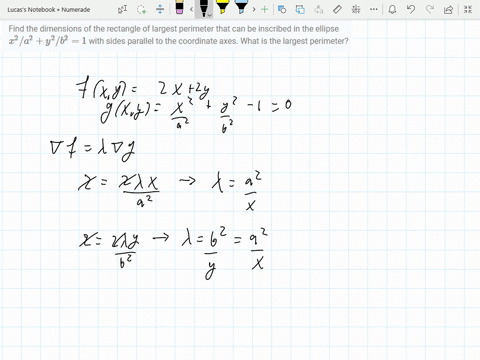 Lucas's Notebook + Numerade
Find the dimensions of the rectangle of largest perimeter that can be inscribed in the ellipse
x²/a² + y²/b² = 1 with sides parallel to the coordinate axes. What is the largest perimeter?
f(x,y) = 2x+2y
g(x,y) = x²/a² + y²/b² - 1 = 0
∇f = λ∇g
2 = 2λx/a² → λ = a²/x
2 = 2λy/b² → λ = b²/y = a²/x